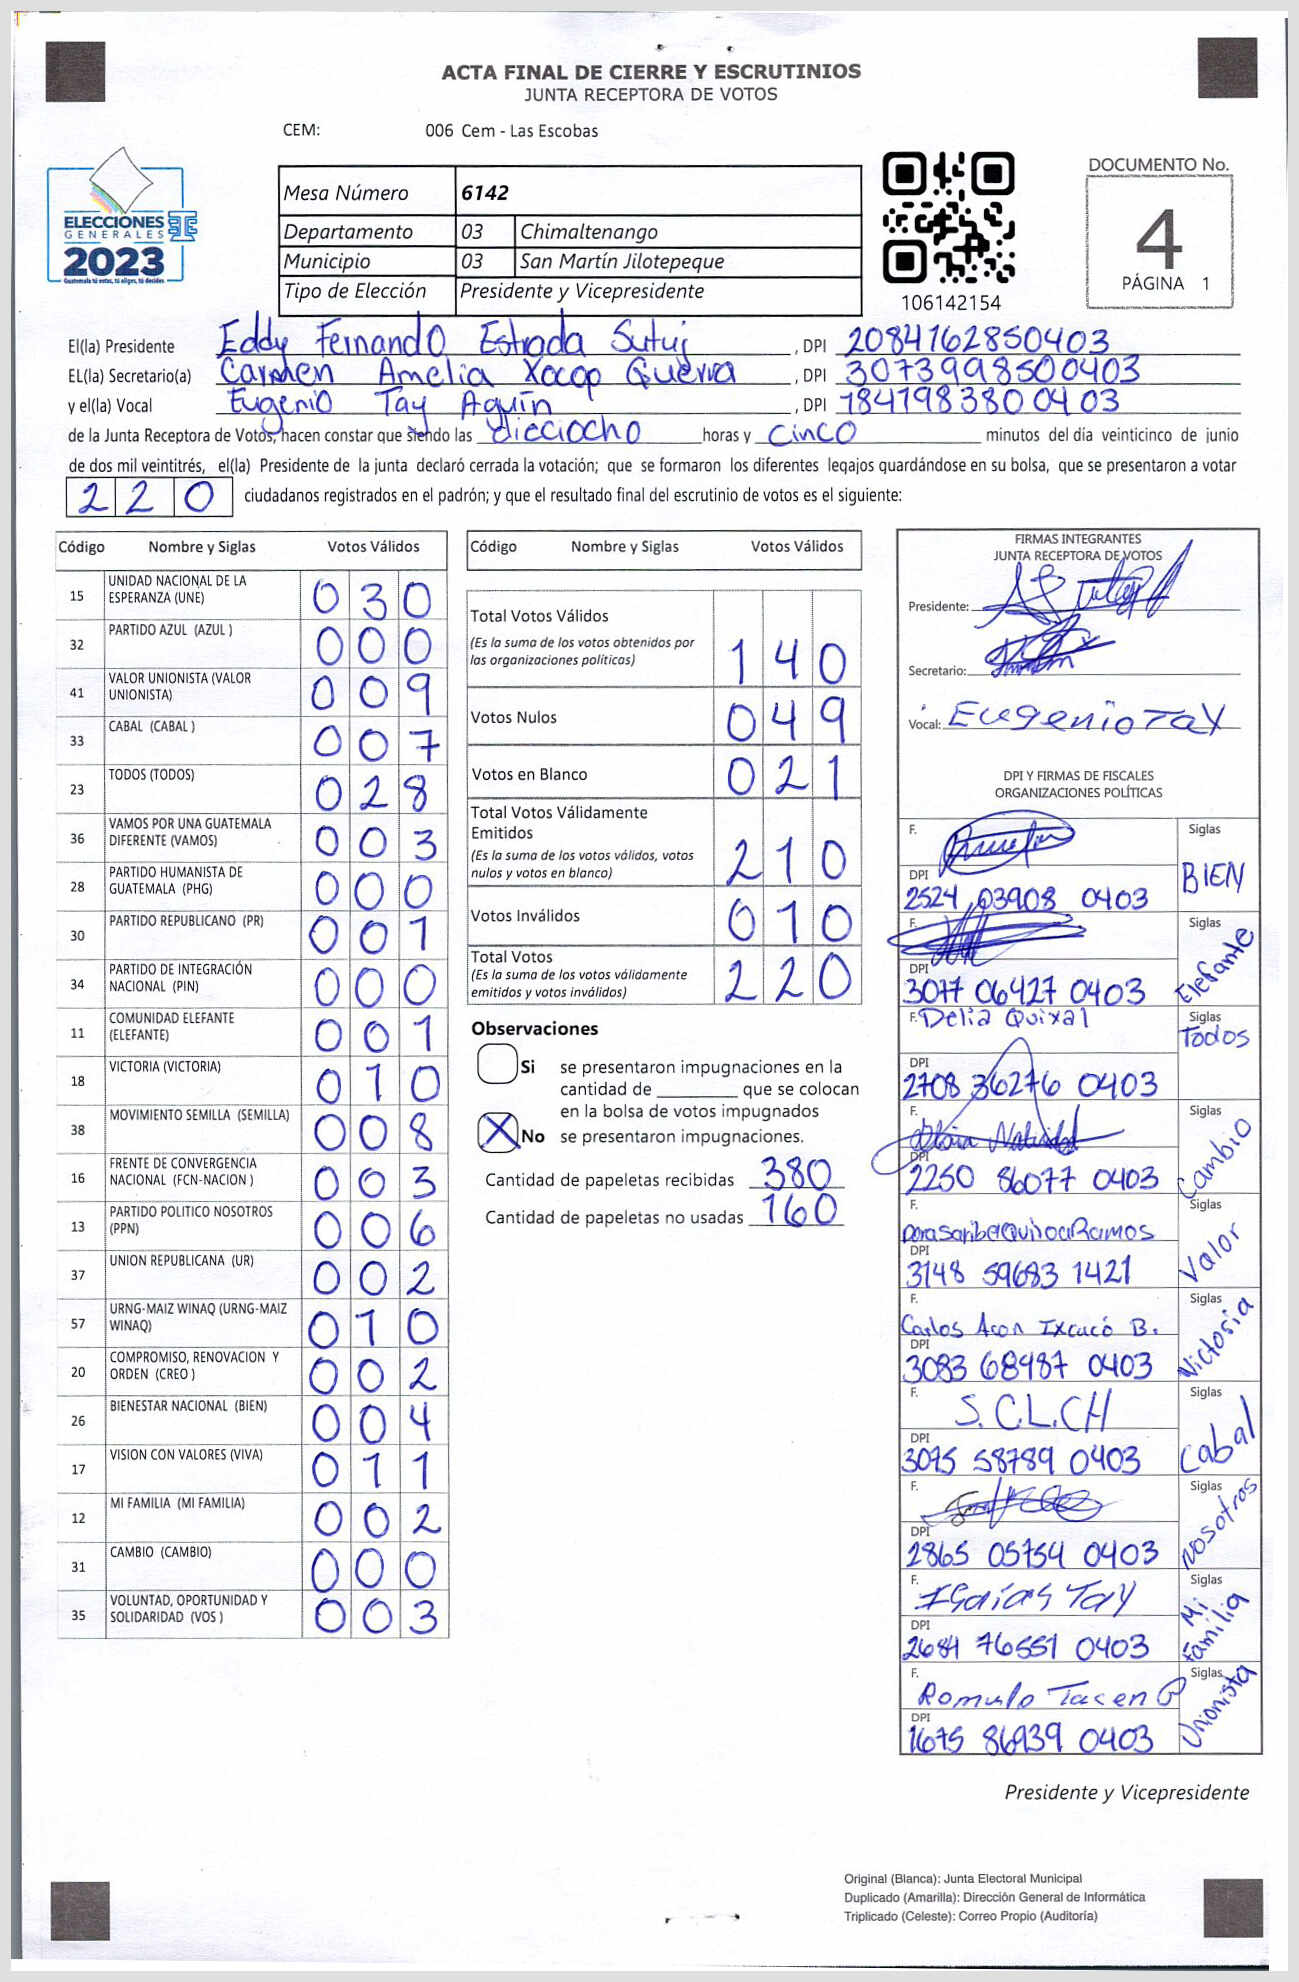 ACTA FINAL DE CIERRE Y ESCRUTINIOS
JUNTA RECEPTORA DE VOTOS
CEM: 006 Cem - Las Escobas
ELECCIONES
GENERALES
2023
Guatemala tú votas, tú eliges, tú decides
Mesa Número 6142
Departamento 03 Chimaltenango
Municipio 03 San Martín Jilotepeque
Tipo de Elección Presidente y Vicepresidente
106142154
DOCUMENTO No.
4
PÁGINA 1
El(la) Presidente Eddy Fernando Estrada Sutuj, DPI 2084162850403
EL(la) Secretario(a) Carmen Amelia Xocop Querra, DPI 3073998500403
y el(la) Vocal Eugenio Tay Aquín, DPI 1841983800403
de la Junta Receptora de Votos, hacen constar que siendo las dieciocho horas y cinco minutos del día veinticinco de junio
de dos mil veintitrés, el(la) Presidente de la junta declaró cerrada la votación; que se formaron los diferentes legajos guardándose en su bolsa, que se presentaron a votar
220 ciudadanos registrados en el padrón; y que el resultado final del escrutinio de votos es el siguiente:
Código Nombre y Siglas Votos Válidos
15 UNIDAD NACIONAL DE LA ESPERANZA (UNE) 030
32 PARTIDO AZUL (AZUL ) 000
41 VALOR UNIONISTA (VALOR UNIONISTA) 009
33 CABAL (CABAL ) 007
23 TODOS (TODOS) 028
36 VAMOS POR UNA GUATEMALA DIFERENTE (VAMOS) 003
28 PARTIDO HUMANISTA DE GUATEMALA (PHG) 000
30 PARTIDO REPUBLICANO (PR) 001
34 PARTIDO DE INTEGRACIÓN NACIONAL (PIN) 000
11 COMUNIDAD ELEFANTE (ELEFANTE) 001
18 VICTORIA (VICTORIA) 010
38 MOVIMIENTO SEMILLA (SEMILLA) 008
16 FRENTE DE CONVERGENCIA NACIONAL (FCN-NACION ) 003
13 PARTIDO POLITICO NOSOTROS (PPN) 006
37 UNION REPUBLICANA (UR) 002
57 URNG-MAIZ WINAQ (URNG-MAIZ WINAQ) 010
20 COMPROMISO, RENOVACION Y ORDEN (CREO ) 002
26 BIENESTAR NACIONAL (BIEN) 004
17 VISION CON VALORES (VIVA) 011
12 MI FAMILIA (MI FAMILIA) 002
31 CAMBIO (CAMBIO) 000
35 VOLUNTAD, OPORTUNIDAD Y SOLIDARIDAD (VOS ) 003
Código Nombre y Siglas Votos Válidos
Total Votos Válidos
(Es la suma de los votos obtenidos por las organizaciones políticas) 140
Votos Nulos 049
Votos en Blanco 021
Total Votos Válidamente Emitidos
(Es la suma de los votos válidos, votos nulos y votos en blanco) 210
Votos Inválidos 010
Total Votos
(Es la suma de los votos válidamente emitidos y votos inválidos) 220
Observaciones
Si se presentaron impugnaciones en la
cantidad de ________ que se colocan
en la bolsa de votos impugnados
X No se presentaron impugnaciones.
Cantidad de papeletas recibidas 380
Cantidad de papeletas no usadas 160
FIRMAS INTEGRANTES
JUNTA RECEPTORA DE VOTOS
Presidente:
Secretario:
Vocal: Eugenio Tay
DPI Y FIRMAS DE FISCALES
ORGANIZACIONES POLÍTICAS
F. Siglas
DPI BIEN
2524 03908 0403
F. Siglas
DPI Elefante
3077 06427 0403
F. Delia Quixal Siglas
DPI Todos
2708 36276 0403
F. Siglas
DPI Cambio
2250 86077 0403
F. Siglas
Ramos
DPI Valor
3148 59683 1421
F. Siglas
Carlos Acon Ixcucó B.
DPI Victoria
3083 68487 0403
F. S.C.L.CH Siglas
DPI Cabal
3075 58789 0403
F. Siglas
DPI Nosotros
2865 05754 0403
F. Isaías Tay Siglas
DPI Mi Familia
2684 76551 0403
F. Romulo Siglas
DPI Unionista
1675 86939 0403
Presidente y Vicepresidente
Original (Blanca): Junta Electoral Municipal
Duplicado (Amarilla): Dirección General de Informática
Triplicado (Celeste): Correo Propio (Auditoría)